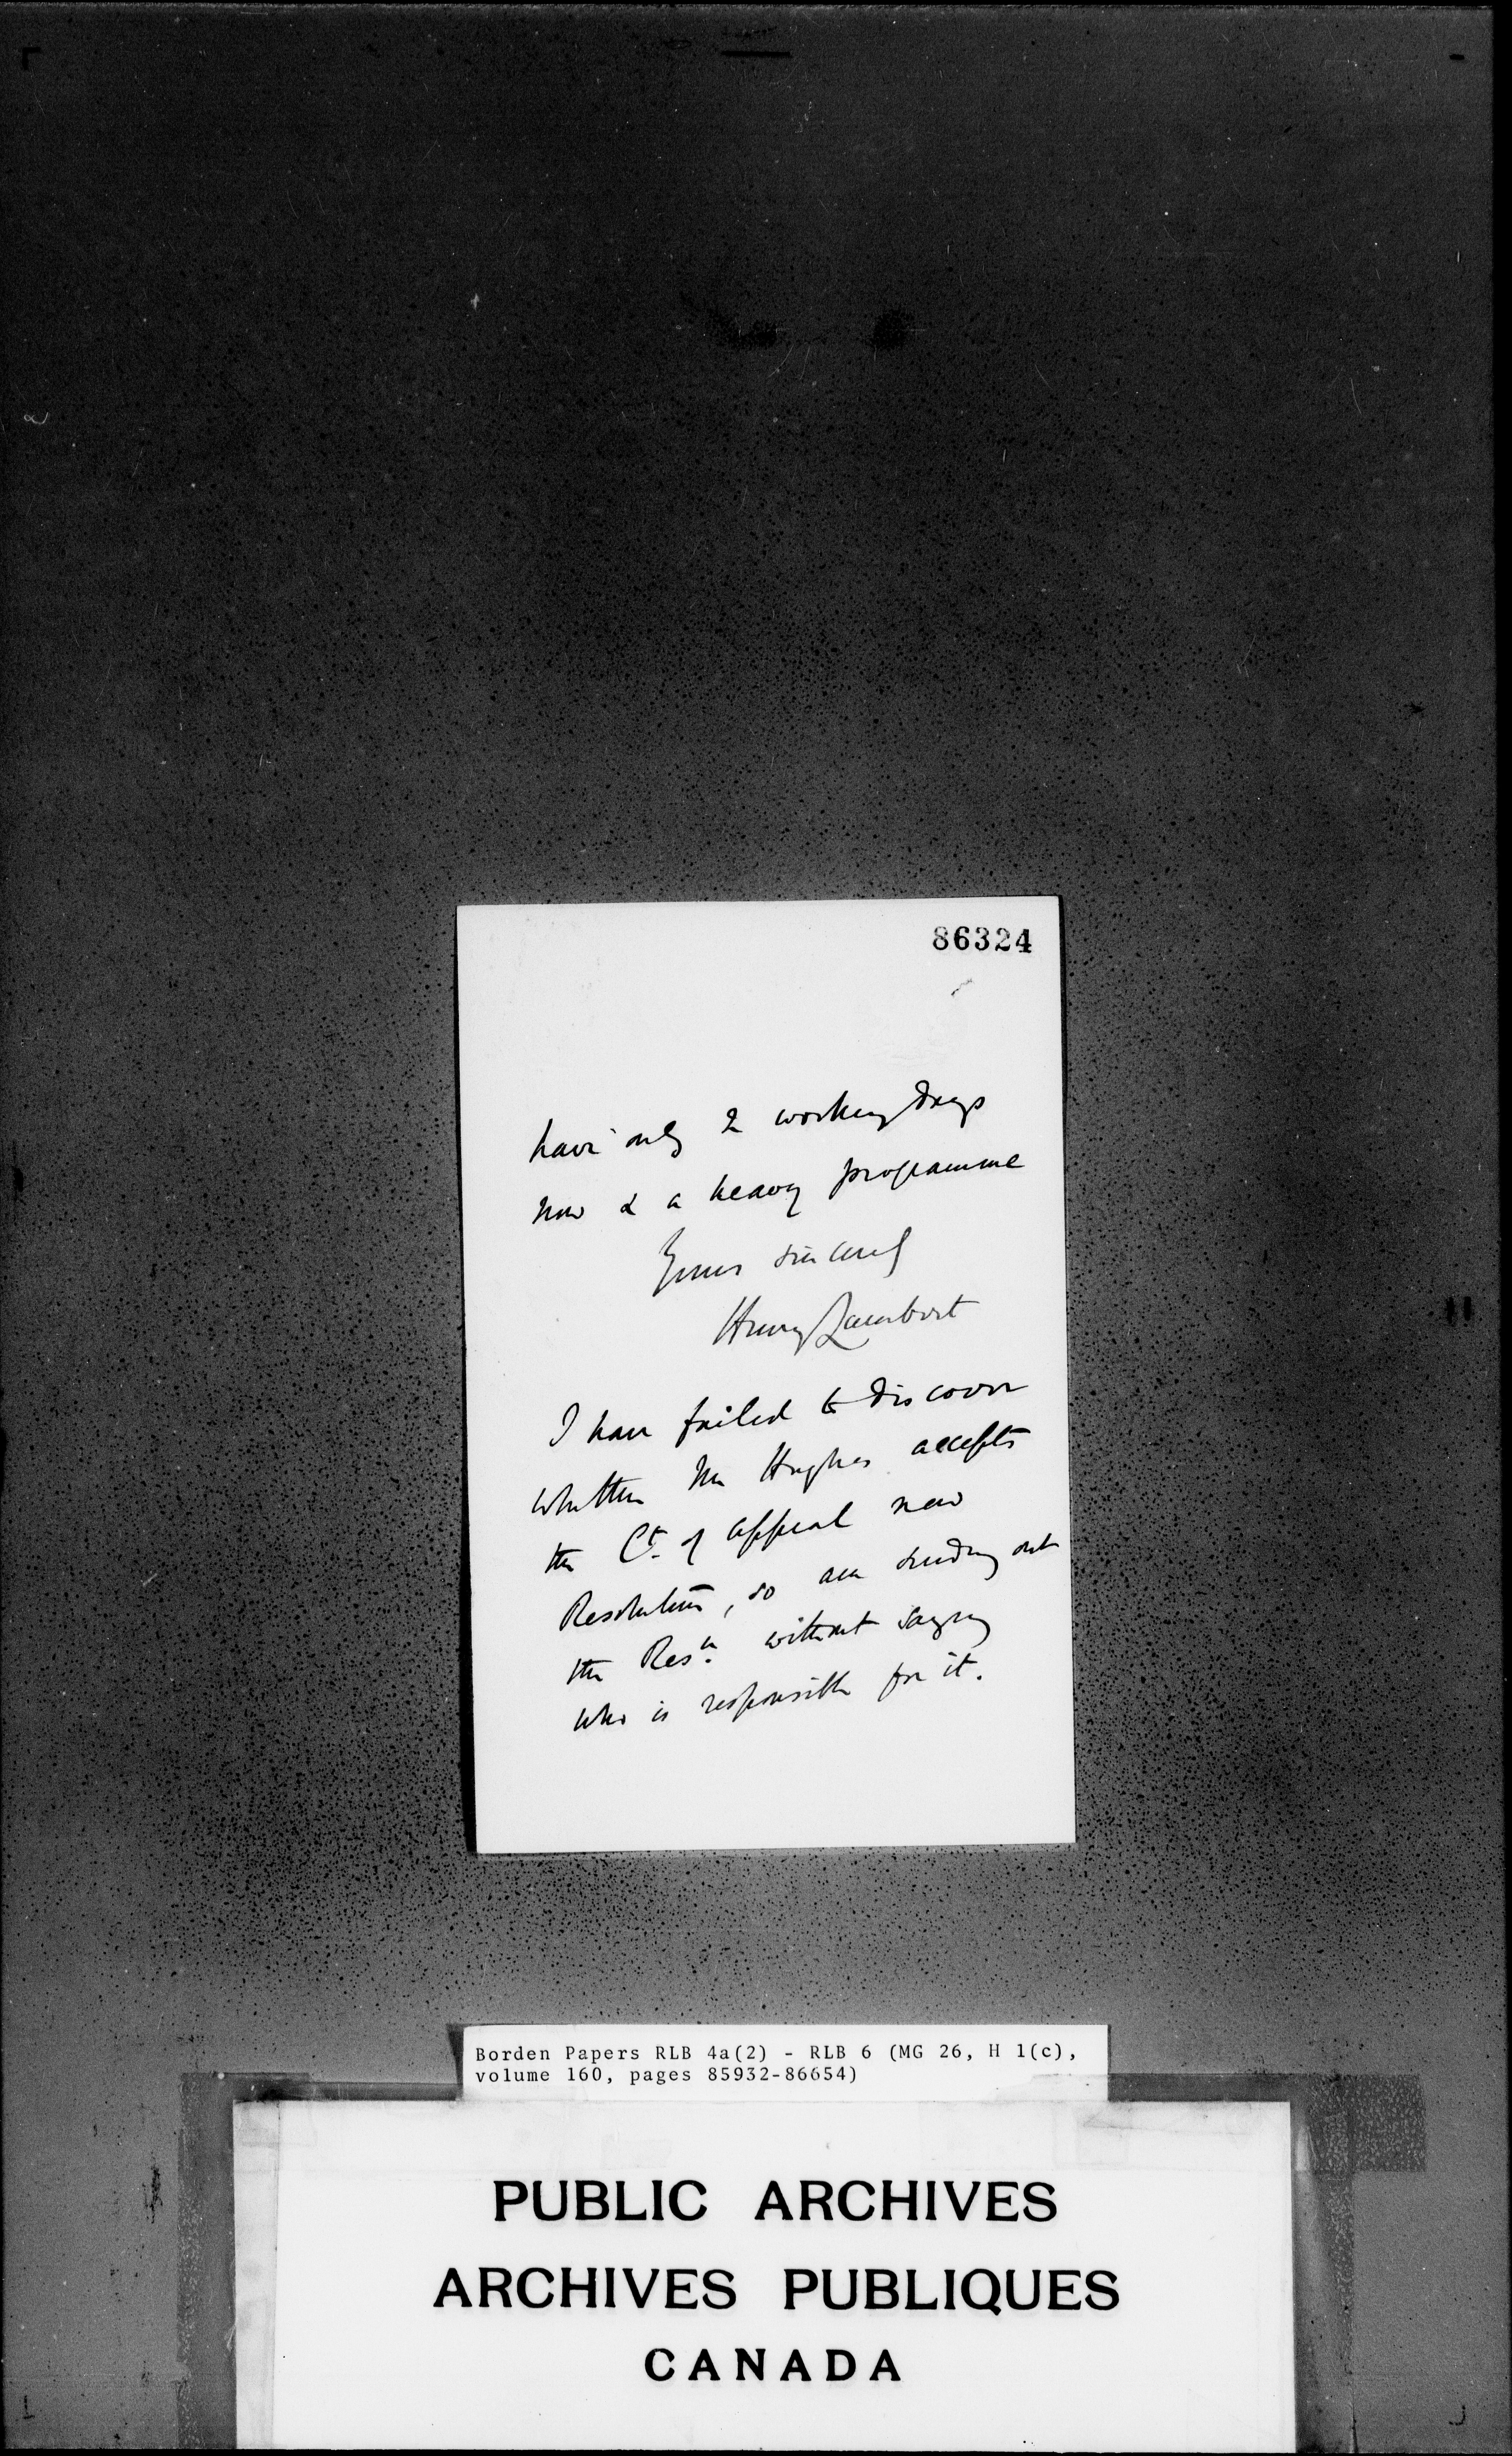 86324
have only 2 working days
now & a heavy programme
Yours sincerely
Henry Lambert
I have failed to discover
whether Mr Hughes accepts
the Ct. of Appeal new
Resolution, so am sending out
the Resn. without saying
who is responsible for it.
Borden Papers RLB 4a(2) - RLB 6 (MG 26, H 1(c),
volume 160, pages 85932-86654)
PUBLIC ARCHIVES
ARCHIVES PUBLIQUES
CANADA